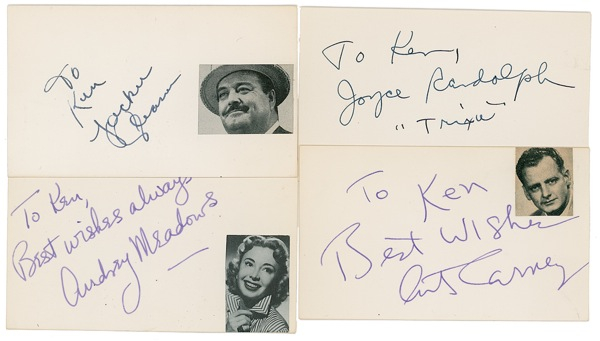 To
Ken
Jackie
Gleason
To Ken,
Joyce Randolph
"Trixie"
To Ken,
Best wishes always
Audrey Meadows
To Ken
Best Wishes
Art Carney